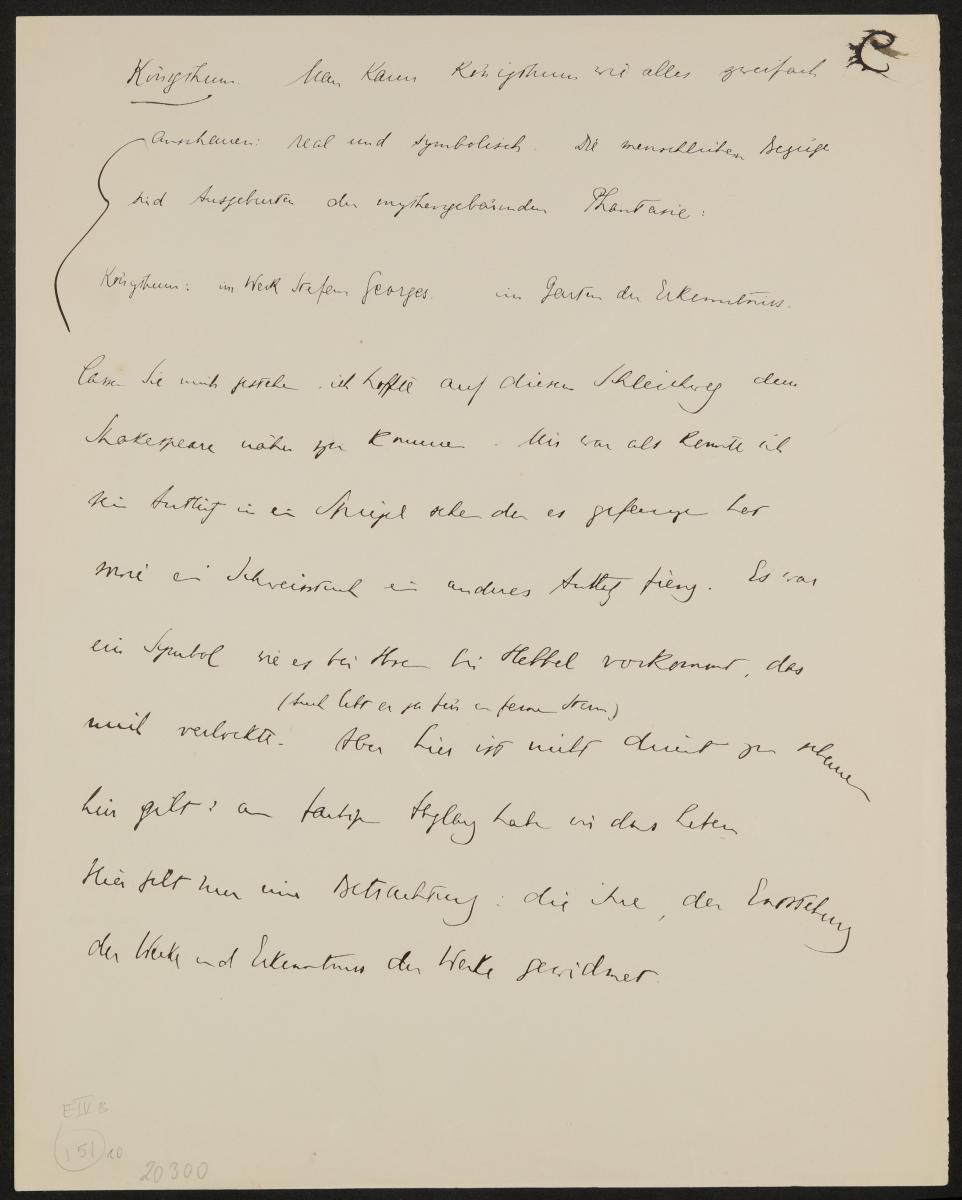 C
Königthum Man kann Königthum wie alles zweifach
anschauen: real und symbolisch. Die menschlichen Bezüge
sind Ausgeburten der mythengebärenden Phantasie:
Königthum: im Werk Stefan Georges. im Garten der Erkenntniss.
lassen Sie mich gestehen, ich hoffte auf diesem Schleichweg dem
Shakespeare näher zu kommen. Mir war als könnte ich
sein Antlitz in ein Spiegel sehen der es gefangen hat
sowie ein Schweisstuch ein anderes Antlitz fieng. Es war
ein Symbol wie es bei Ihnen bei Hebbel vorkommt, das
(Auch lebt er ja für in fernen Stern)
mich verlockte. Aber hier ist nicht direct zu schauen
hier gilt: am farbigen Abglanz haben wir das Leben
Hier gilt nur eine Betrachtung: die ihre, der Entstehung
der Werke und Erkenntniss der Werke gewidmet.
E IV B
151 20
20300